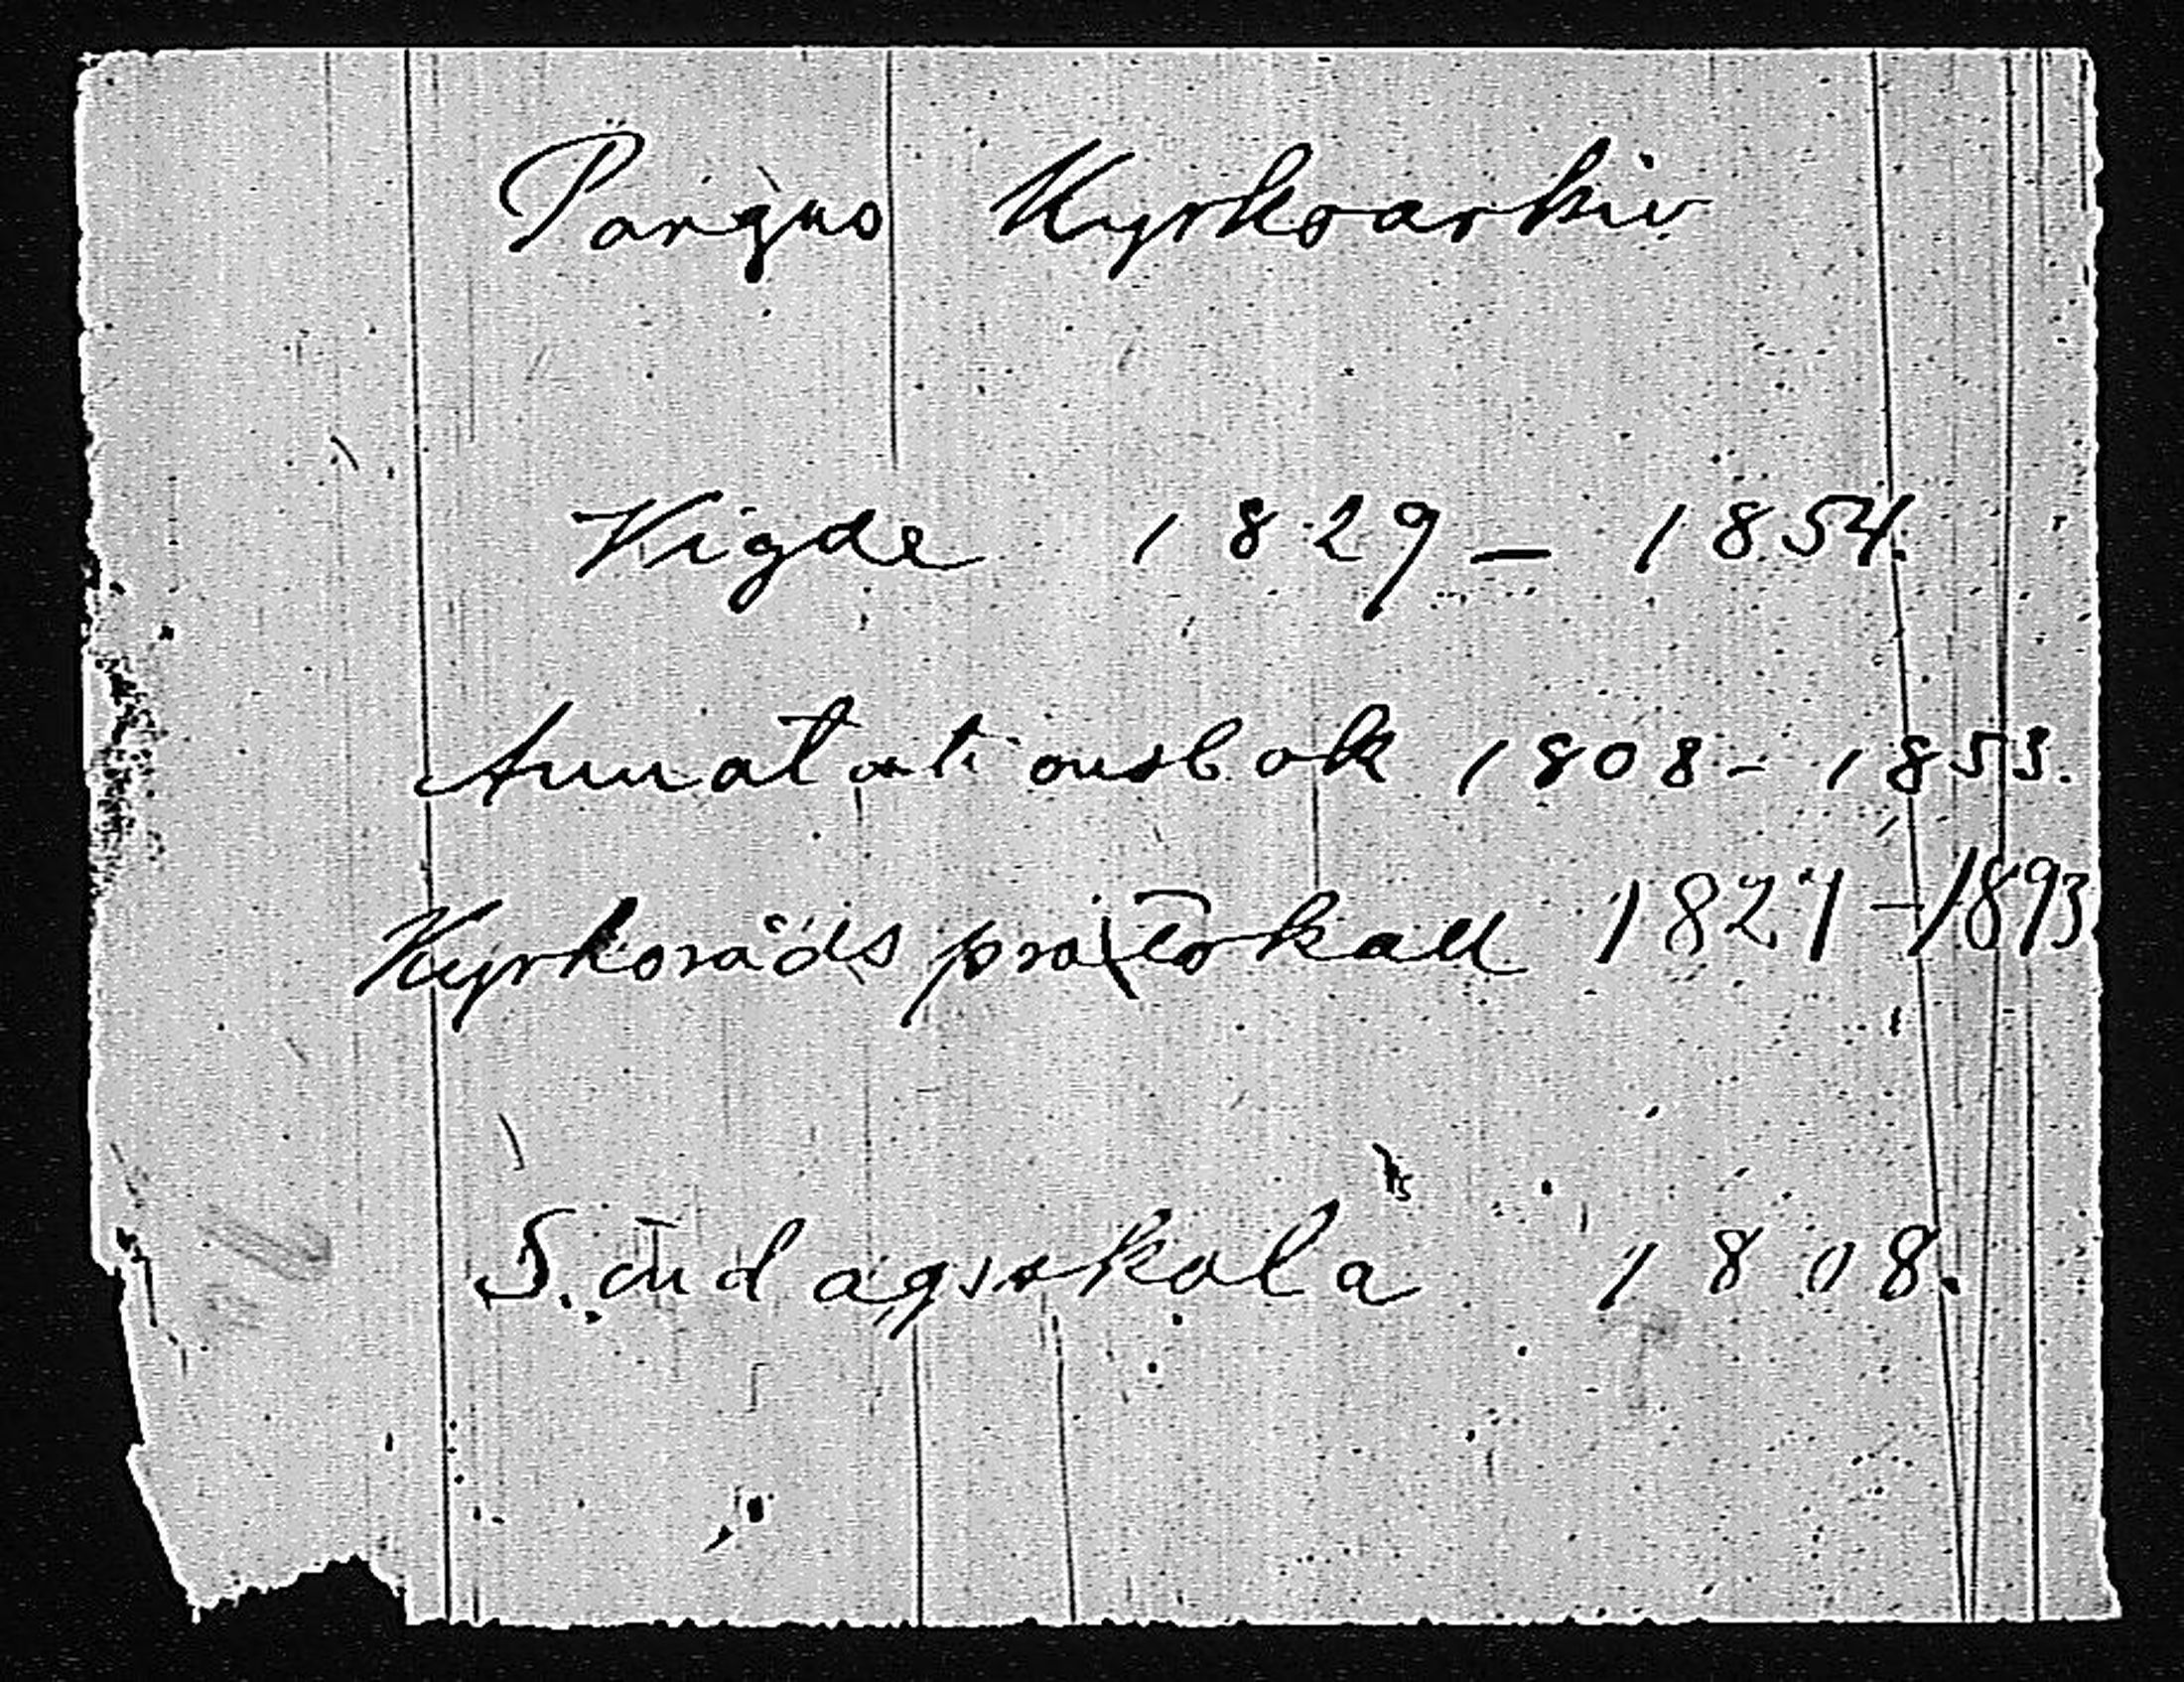 Pargas Kyrkoarkiv
Vigde 1829 – 1854.
Annotationsbok 1808 – 1853.
Kyrkoråds protokoll 1827 – 1893
Söndagsskola 1808.